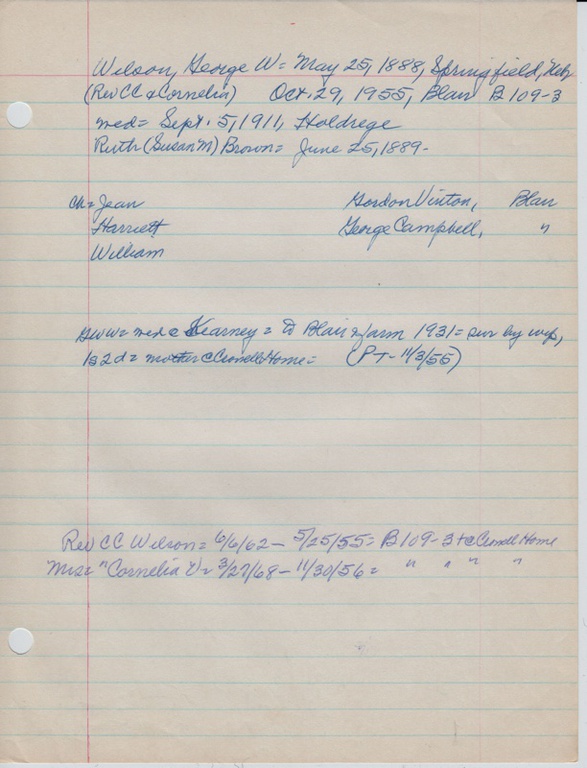 Wilson, George W = May 25, 1888, Springfield, Neb
(Rev CC & Cornelia) Oct. 29, 1955, Blair B 109-3
med = Sept. 5, 1911, Holdrege
Ruth (Susan M) Brown = June 25, 1889-
ch = Jean Gordon Vinton, Blair
Harriett George Campbell, "
William
GWW = med @ Kearney = to Blair & farm 1931 = sur by wf,
1s 2d = mother @ Crowell Home = (PT - 11/3/55)
Rev CC Wilson = 6/6/62 - 5/25/55 = B 109-3 + @ Crowell Home
Mrs = " Cornelia V = 3/27/68 - 11/30/56 = " " " "